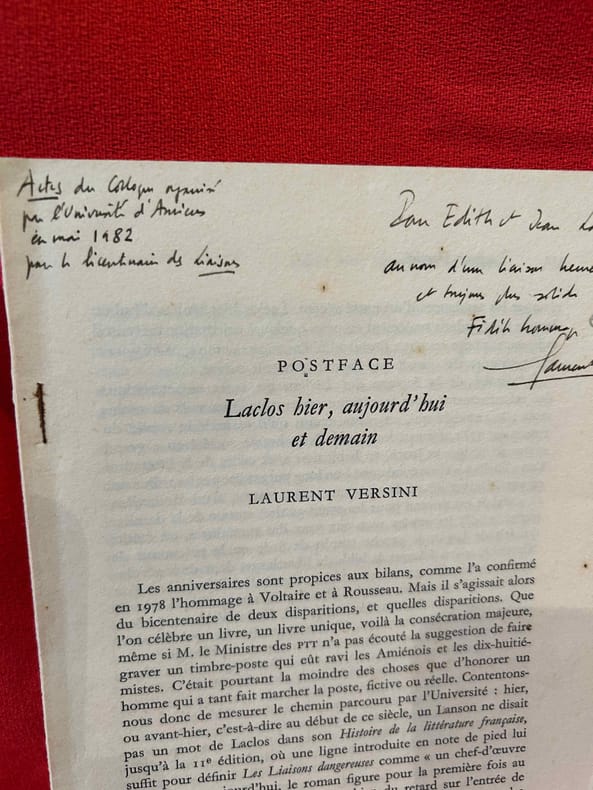 Actes du Colloque organisé
par l'Université d'Amiens
en mai 1982
pour le bicentenaire des Liaisons
Pour Edith et Jean
au nom d'une liaison
et toujours plus solide
Fidèle hommage
Laurent
POSTFACE
Laclos hier, aujourd'hui
et demain
LAURENT VERSINI
Les anniversaires sont propices aux bilans, comme l'a confirmé
en 1978 l'hommage à Voltaire et à Rousseau. Mais il s'agissait alors
du bicentenaire de deux disparitions, et quelles disparitions. Que
l'on célèbre un livre, un livre unique, voilà la consécration majeure,
même si M. le Ministre des PTT n'a pas écouté la suggestion de faire
graver un timbre-poste qui eût ravi les Amiénois et les dix-huitié-
mistes. C'était pourtant la moindre des choses que d'honorer un
homme qui a tant fait marcher la poste, fictive ou réelle. Contentons-
nous donc de mesurer le chemin parcouru par l'Université : hier,
ou avant-hier, c'est-à-dire au début de ce siècle, un Lanson ne disait
pas un mot de Laclos dans son Histoire de la littérature française,
jusqu'à la 11e édition, où une ligne introduite en note de pied lui
suffit pour définir Les Liaisons dangereuses comme « un chef-d'œuvre
aujourd'hui, le roman figure pour la première fois au
du retard sur l'entrée de